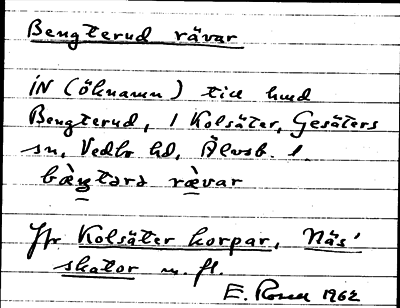 Bengterud rävar
iN (öknamn) till hmd
Bengterud, 1 Kolsäter, Gesäters
sn, Vedbo hd, Älvsb. l.
bæ̀ŋtərə rævar
Jfr Kolsäter korpar, Näs'
skator m. fl.
E. 1962